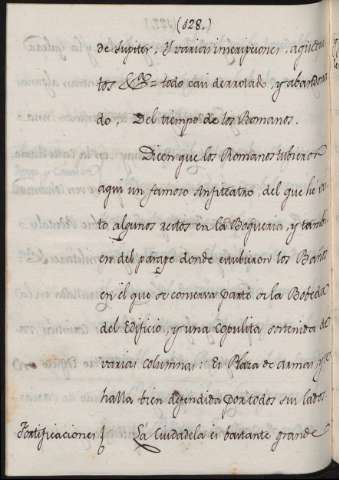 (628.)
de Jupiter. Y varias inscripciones, aqueduc
tos &c.ª todo casi derrotado, y abandona
do, Del tiempo de los Romanos.
Dicen que los Romanos tubieron
aqui un famoso Anfiteatro, del que he vis
to algunos restos en la Boqueria, y tambi
en del parage donde estubieron los Baños
en el que se conserva parte de la Boveda
del Edificio, y una Copulita sostenida de
varias Columnas: Es Plaza de armas, y se
halla bien defendida por todos sus lados.
Fortificaciones} La Ciudadela es bastante grande